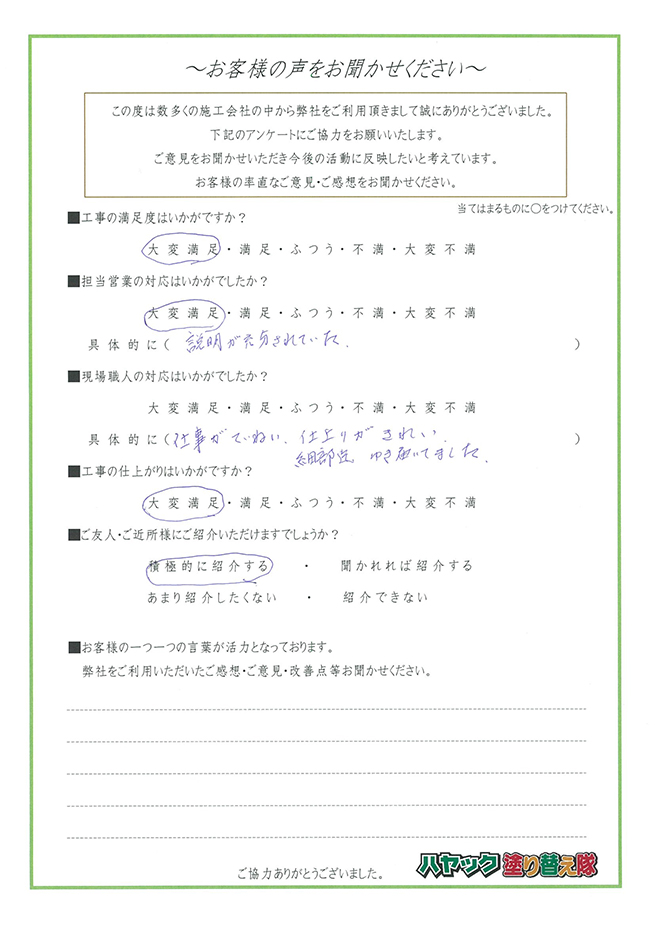 ～お客様の声をお聞かせください～
この度は数多くの施工会社の中から弊社をご利用頂きまして誠にありがとうございました。
下記のアンケートにご協力をお願いいたします。
ご意見をお聞かせいただき今後の活動に反映したいと考えています。
お客様の率直なご意見・ご感想をお聞かせください。
当てはまるものに〇をつけてください。
■工事の満足度はいかがですか？
大変満足・満足・ふつう・不満・大変不満
■担当営業の対応はいかがでしたか？
大変満足・満足・ふつう・不満・大変不満
具体的に（説明が充分されていた．）
■現場職人の対応はいかがでしたか？
大変満足・満足・ふつう・不満・大変不満
具体的に（仕事がていねい．仕上りがきれい．）
細部迄 ゆき届いてました．
■工事の仕上がりはいかがですか？
大変満足・満足・ふつう・不満・大変不満
■ご友人・ご近所様にご紹介いただけますでしょうか？
積極的に紹介する ・ 聞かれれば紹介する
あまり紹介したくない ・ 紹介できない
■お客様の一つ一つの言葉が活力となっております。
弊社をご利用いただいたご感想・ご意見・改善点等お聞かせください。
ハヤック塗り替え隊
ご協力ありがとうございました。